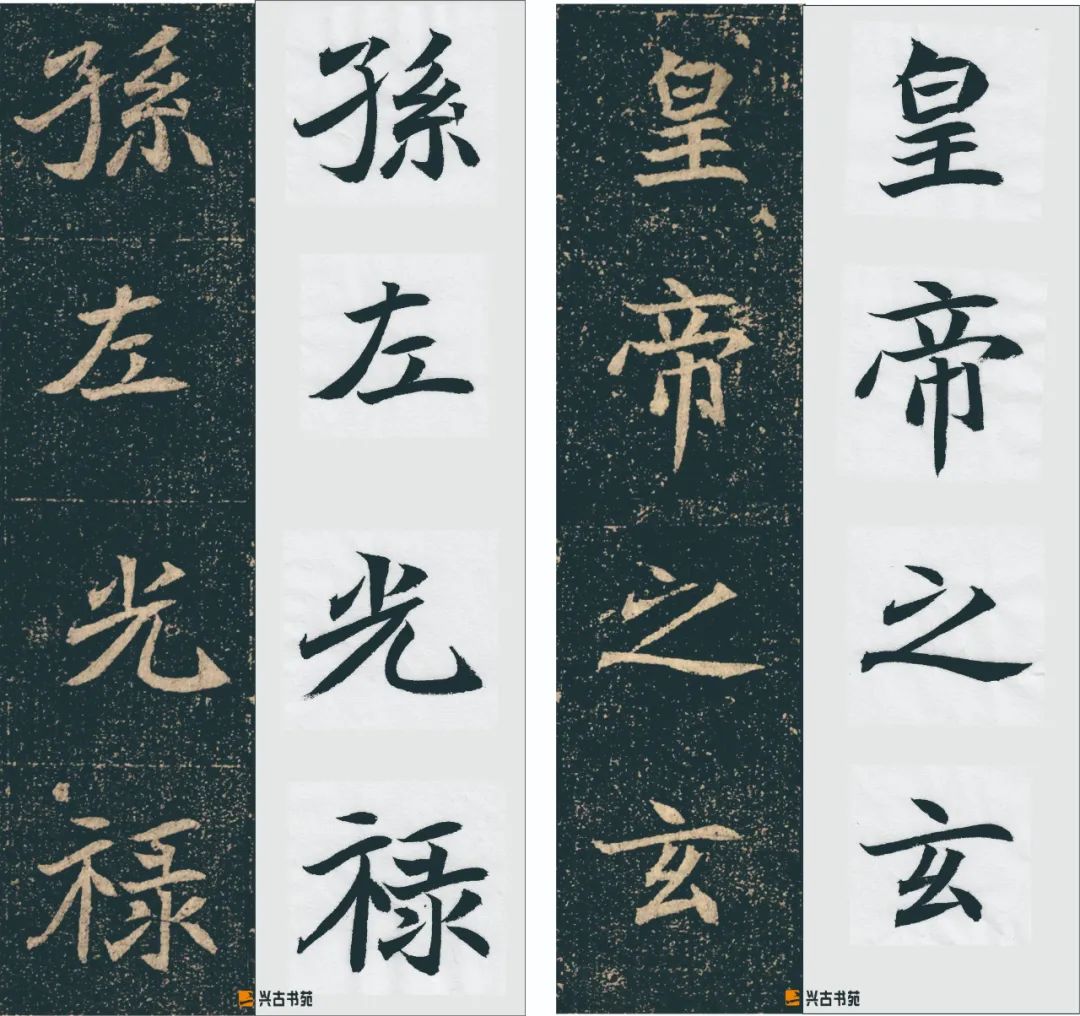 皇帝之玄
皇帝之玄
孫左光禄
孫左光禄
兴古书苑
兴古书苑